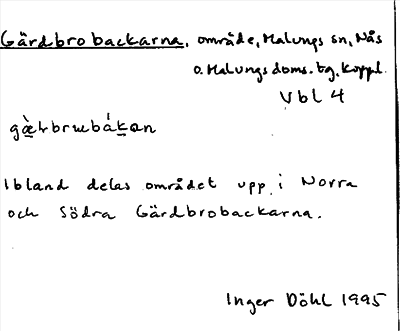 Gärdbrobackarna, område, Malungs sn, Nås
o. Malungs doms. tg, Koppl.
Vbl 4
gæ̀ɫbrɯbákan
Ibland delas området upp i Norra
och Södra Gärdbrobackarna.
Inger Döhl 1995